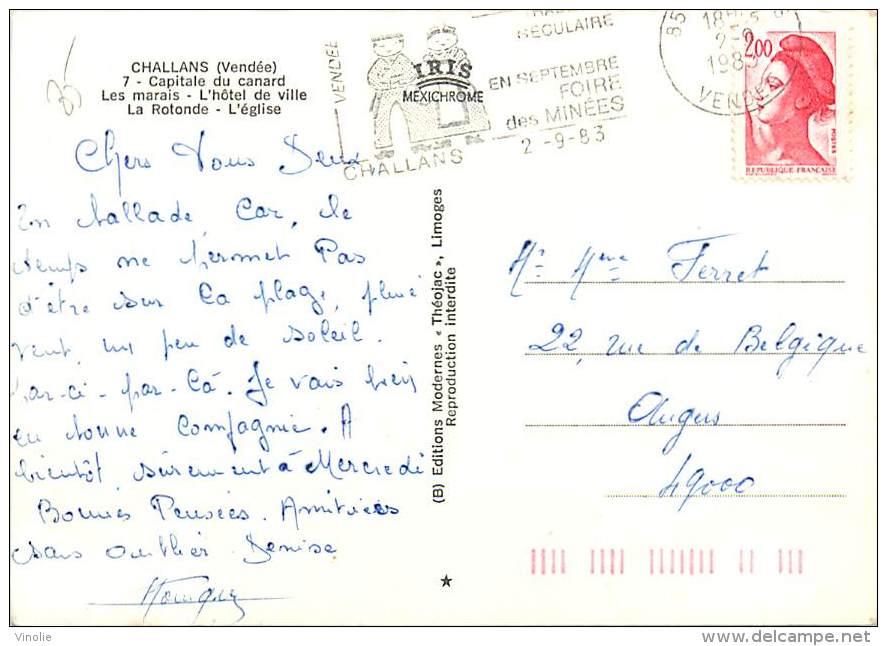 CHALLANS (Vendée)
7 - Capitale du canard
Les marais - L'hôtel de ville
La Rotonde - L'église
VENDEE
CHALLANS
IRIS
MEXICHROME
SECULAIRE
EN SEPTEMBRE
FOIRE
des MINÉES
2-9-83
85
18H
2-9
1983
VENDEE
2,00
POSTES
REPUBLIQUE FRANÇAISE
Chers Vous Deux
En ballade, Car, le
temps ne permet Pas
d'être sur la plage, pluie
vent, un peu de soleil
par-ci-par-là. Je vais bien
en bonne Compagnie. A
bientôt, sûrement à Mercredi
Bonnes Pensées. Amitiées
sans oublier Denise
(B) Editions Modernes « Théojac », Limoges
Reproduction interdite
Mr Mme Ferret
22, rue de Belgique
Angers
49000
Vinolie
www.delcampe.net